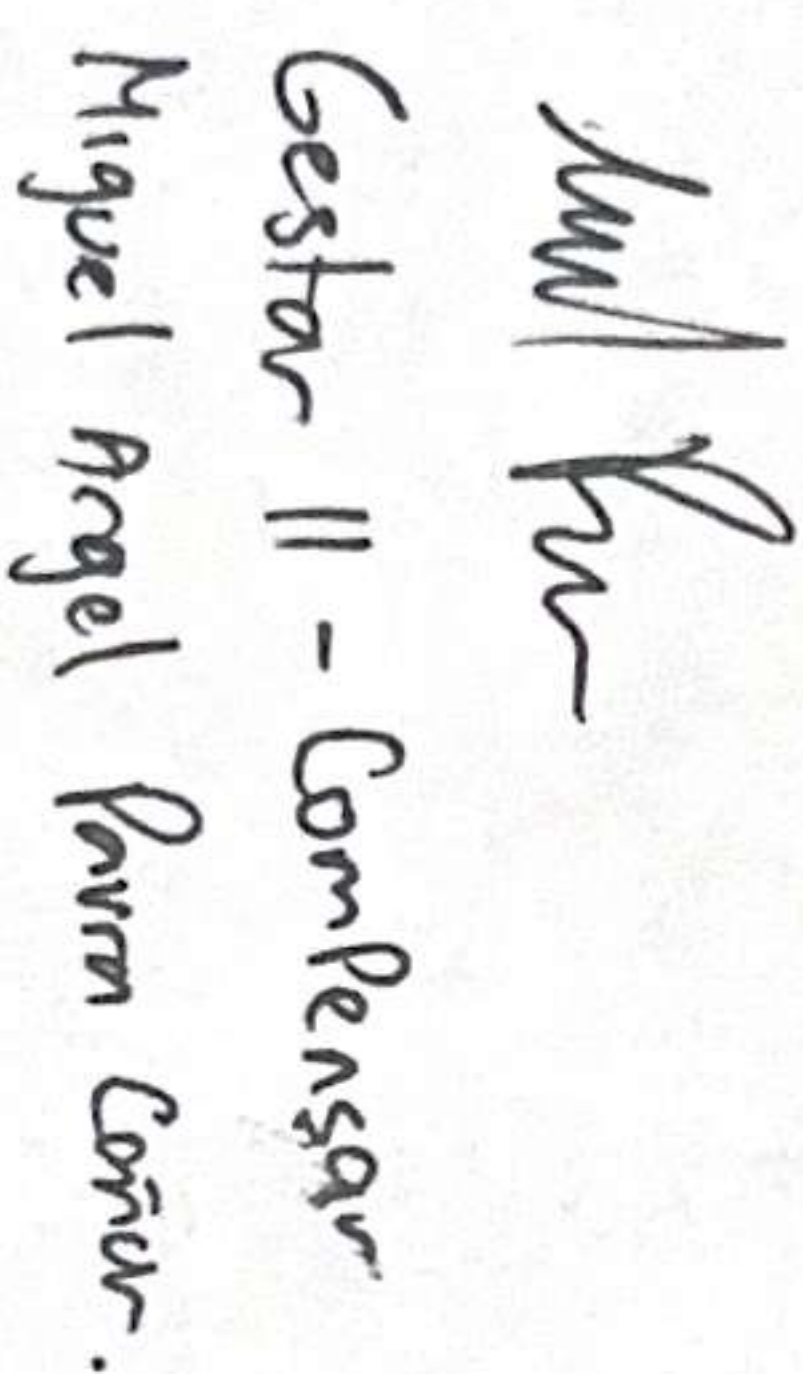 Gestar II - Compensar
Miguel Angel Pavon Coñer.